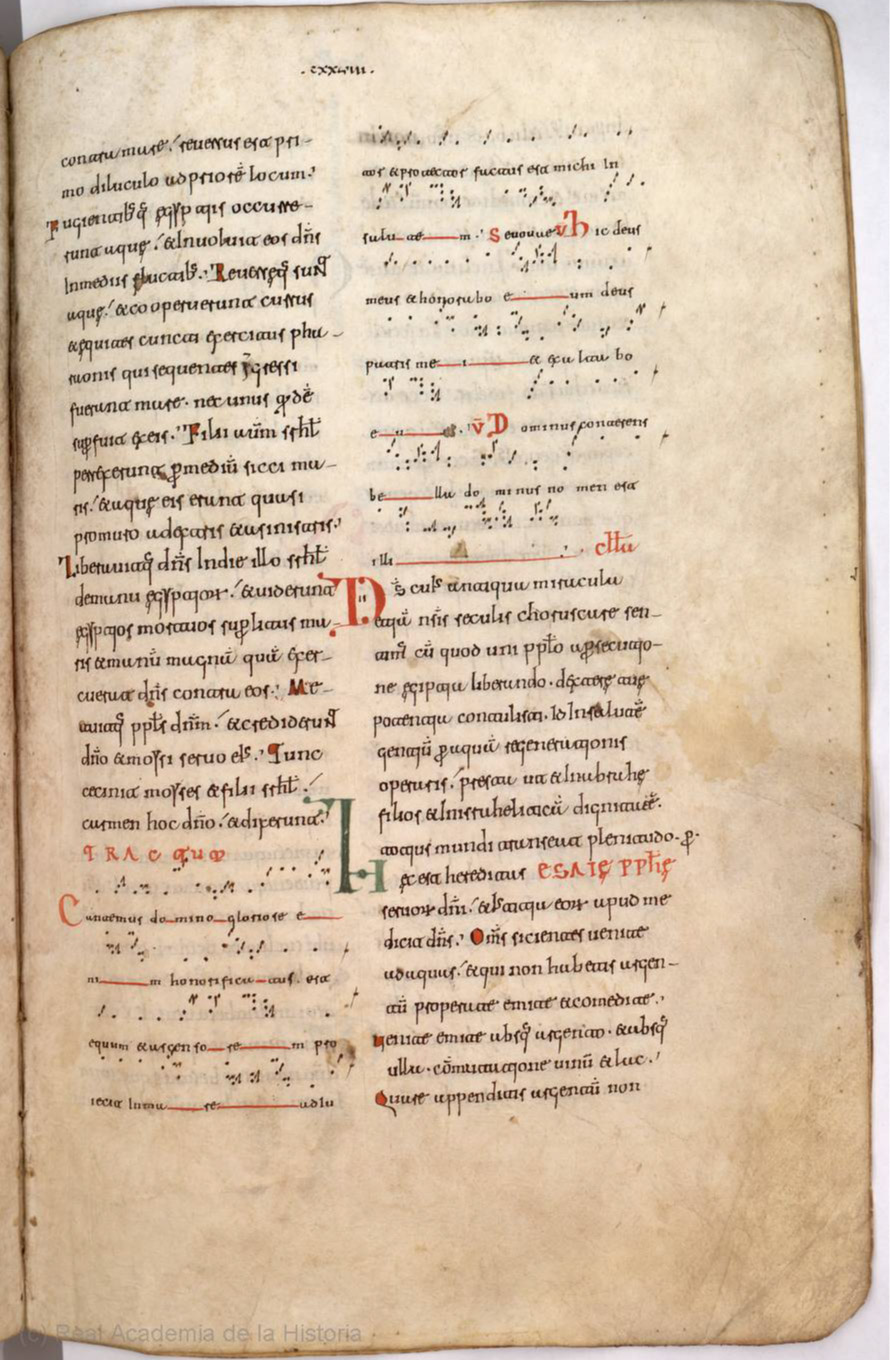 . cxxviii .
contra mare. reversus est pri-
mo diluculo ad priorē locum.
Fugientibꝰq; egiptiis occurre-
runt aque. et involvit eos dn̄s
In mediis fluctibꝰ. Reverseq; sunt
aque. et cooperuerunt currus
et equites cuncti exercitus phara-
raonis qui sequentes īgressi
fuerant mare. nec unus qdē
supfuit ex eis. Filii autm̄ srhl̄
perrexerunt p mediū sicci ma-
ris. et aque eis erant quasi
pro muro a dextris et a sinistris.
Liberavitq; dn̄s In die illo srhl̄
de manu egiptior. et viderunt
egiptios mortuos sup litus ma-
ris et manū magnā quā exer-
cuerat dn̄s contra eos. Me-
tuitq; ppls dn̄m. et crediderunt
dn̄o et moysi servo eiꝰ. Tunc
cecinit moyses et filii srhl̄.
carmen hoc dn̄o. et dixerunt.
TRACTUM
Cantemus domino gloriose e
ni m honorificatus est
equum et ascenso re m pro
iecit In ma re adiu
tor et protector factus est michi In
salu te m. Seuouae V̄ Hic deus
meus et honorabo e um deus
patris me i et exaltabo
e u . V̄ Dominus conterens
be lla dominus nomen est
illi . cllā
D̄s cuiꝰ antiqua miracula
etiā nr̄is seculis choruscare sen-
timꝰ cū quod uni pplo a psecutio-
ne egiptia liberando. dextere tue
potentia contulisti. Id In salutē
gentiū p aquā regenerationis
operaris. presta ut et In abrahe
filios et In israheliticā dignitatē.
totius mundi transeat plenitudo. p.
Hec est hereditas ESAIE PPHE
servor dn̄i. et iustitia eor apud me
dicit dn̄s. Om̄s sicientes venite
ad aquas. et qui non habetis argen-
tū properate emite et comedite.
Venite emite absq; argento. et absq;
ulla. cōmutatione vinū et lac.
Quare appenditis argentū non
(c) Real Academia de la Historia